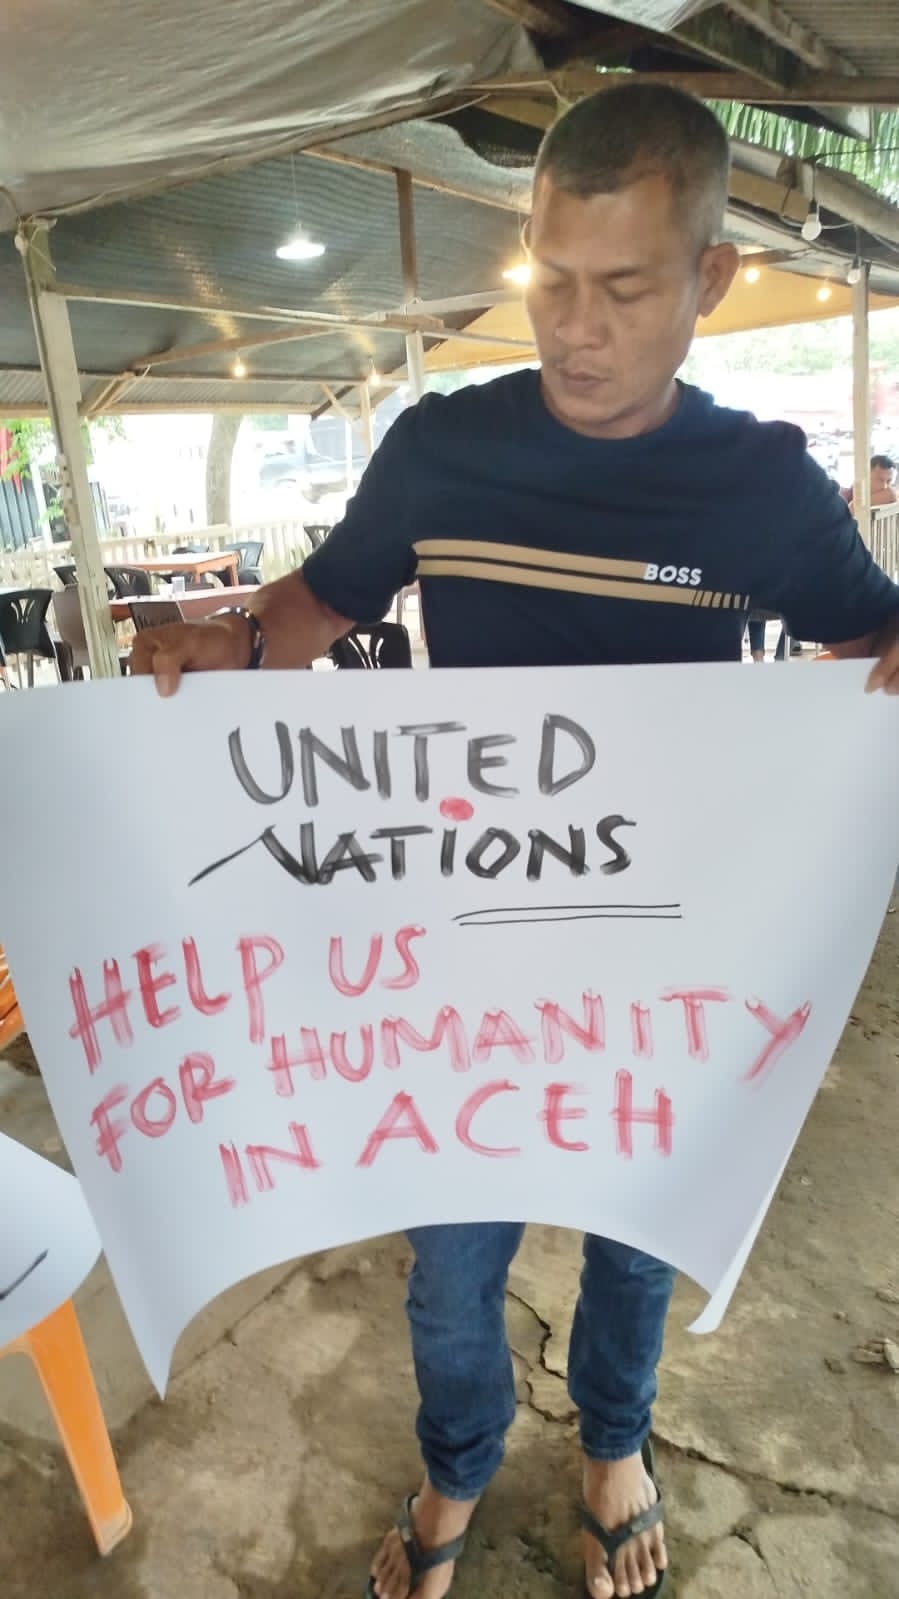 BOSS
UNITED
NATIONS
HELP US
FOR HUMANITY
IN ACEH